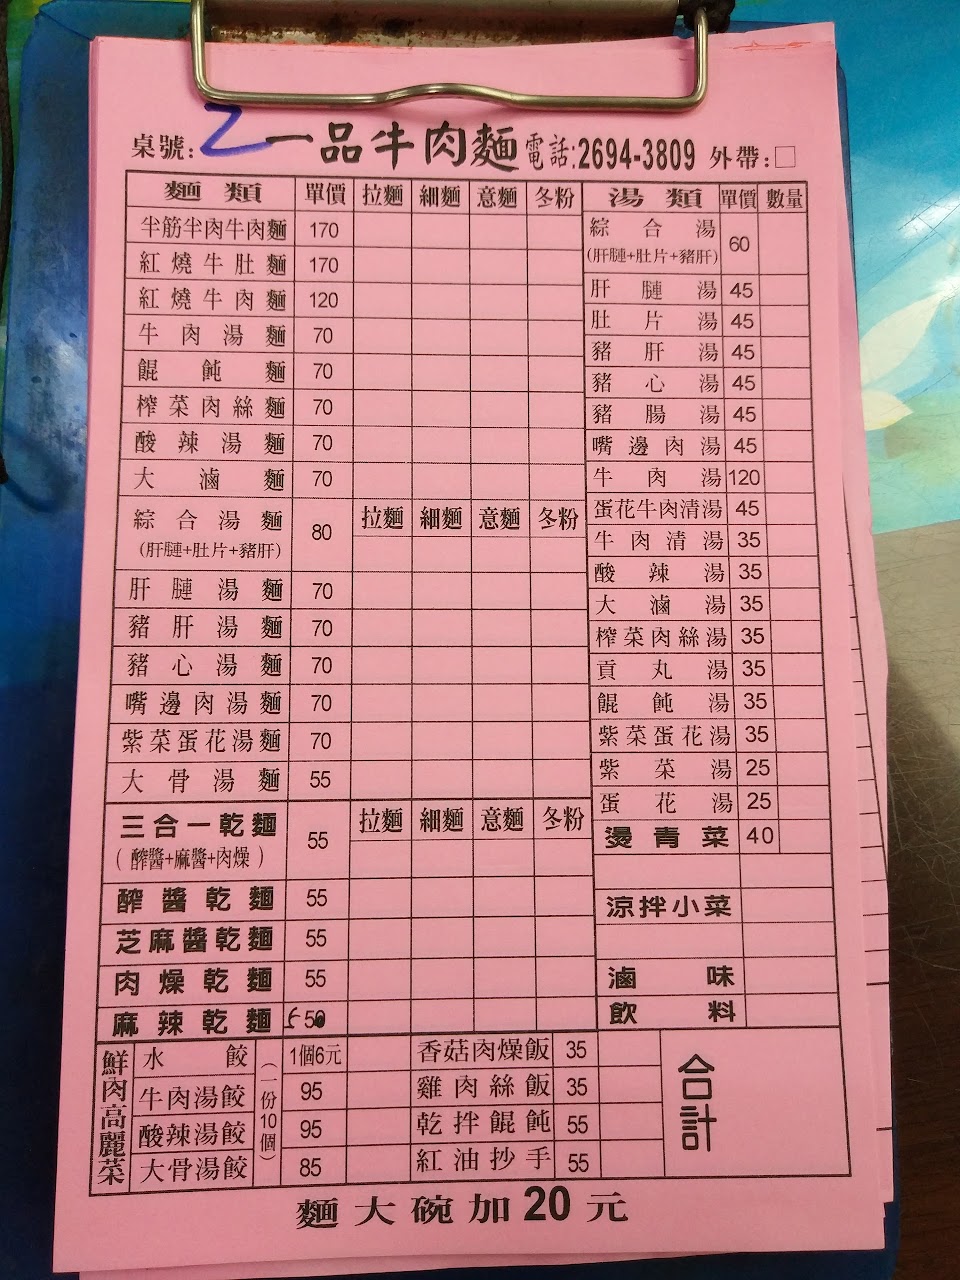 桌號: 2 一品牛肉麵 電話:2694-3809 外帶:□
麵類 單價 拉麵 細麵 意麵 冬粉
半筋半肉牛肉麵 170
紅燒牛肚麵 170
紅燒牛肉麵 120
牛肉湯麵 70
餛飩麵 70
榨菜肉絲麵 70
酸辣湯麵 70
大滷麵 70
綜合湯麵 80 拉麵 細麵 意麵 冬粉
(肝膧+肚片+豬肝)
肝膧湯麵 70
豬肝湯麵 70
豬心湯麵 70
嘴邊肉湯麵 70
紫菜蛋花湯麵 70
大骨湯麵 55
三合一乾麵 55 拉麵 細麵 意麵 冬粉
(醡醬+麻醬+肉燥)
醡醬乾麵 55
芝麻醬乾麵 55
肉燥乾麵 55
麻辣乾麵
湯類 單價 數量
綜合湯 60
(肝膧+肚片+豬肝)
肝膧湯 45
肚片湯 45
豬肝湯 45
豬心湯 45
豬腸湯 45
嘴邊肉湯 45
牛肉湯 120
蛋花牛肉清湯 45
牛肉清湯 35
酸辣湯 35
大滷湯 35
榨菜肉絲湯 35
貢丸湯 35
餛飩湯 35
紫菜蛋花湯 35
紫菜湯 25
蛋花湯 25
燙青菜 40
涼拌小菜
滷味
飲料
鮮肉高麗菜
(一份10個)
水餃 1個6元
牛肉湯餃 95
酸辣湯餃 95
大骨湯餃 85
香菇肉燥飯 35
雞肉絲飯 35
乾拌餛飩 55
紅油抄手 55
合計
麵大碗加20元